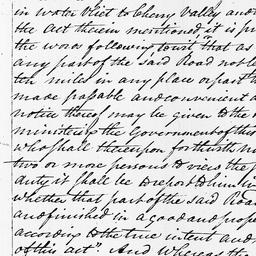 in water Vliet to Cherry Valley and
the Act therein mentioned it is pr
the words following to wit "That as
any part of the said Road not le
ten miles in any place or part
made passable and convenient a
notice thereof may be given to the
ministering the Government of this
who shall thereupon forthwith
two or more persons to view the
duty it shall be to report to him in
whether that part of the said Road
and finished in a good and prope
according to the true intent and
of this act". And Whereas the